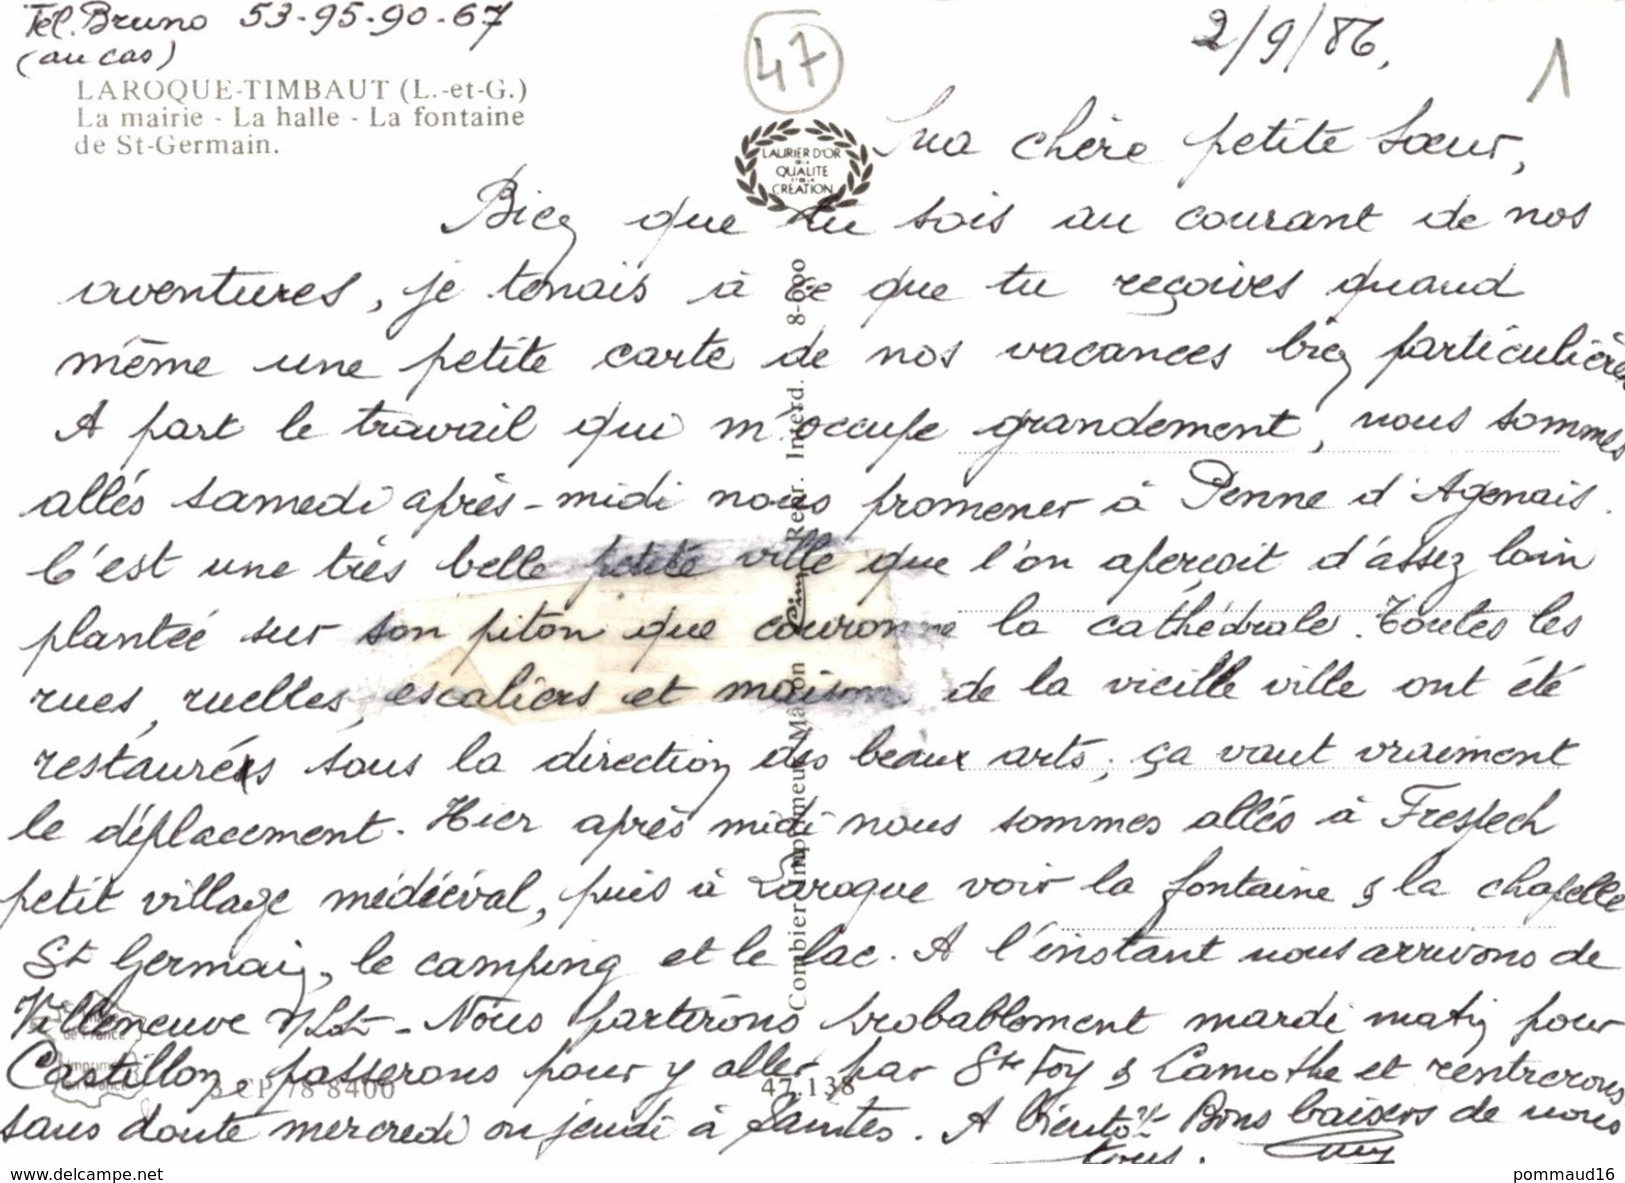 Tél. Bruno 53-95-90-67
(au cas)
47
2/9/86,
1
LAROQUE-TIMBAUT (L.-et-G.)
La mairie - La halle - La fontaine
de St-Germain.
LAURIER D'OR
DE LA
QUALITE
ET DE LA
CREATION
Ma chère petite sœur,
Bien que tu sois au courant de nos
aventures, je tenais à ce que tu reçoives quand
même une petite carte de nos vacances bien particulières
A part le travail qui m'occupe grandement, nous sommes
allés samedi après-midi nous promener à Penne d'Agenais.
C'est une très belle petite ville que l'on aperçoit d'assez loin
plantée sur son piton que couronne la cathédrale. Toutes les
rues, ruelles, escaliers et maisons de la vieille ville ont été
restaurés sous la direction des beaux arts, ça vaut vraiment
le déplacement. Hier après midi nous sommes allés à Frespech
petit village médiéval, puis à Laroque voir la fontaine & la chapelle
St Germain, le camping et le lac. A l'instant nous arrivons de
Villeneuve s/Lot - Nous partirons probablement mardi matin pour
Castillon, passerons pour y aller par Ste Foy & Lamothe et rentrerons
sans doute mercredi ou jeudi à Saintes. A bientôt. Bons baisers de nous
tous.
Combier Imprimeur Mâcon Cim Repr. Interd. 8-600
de France
Imprimé
en France
S CP 78 8400
47.138
www.delcampe.net
pommaud16